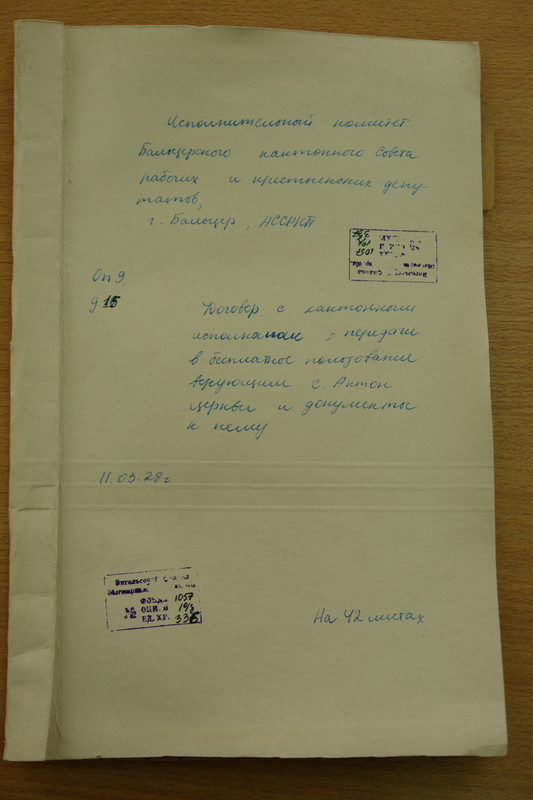 Исполнительный комитет
Бальцерского кантонного Совета
рабочих и крестьянских депу-
татов,
г. Бальцер, АССРНП
Оп 9
д 15
Договор с кантонным
исполкомом о передаче
в бесплатное пользование
верующим с. Антон
церкви и документы
к нему
11.03.28 г.
Энгельсский филиал
ФОНД № 1057
ОПИ. № 19/3
ЕД. ХР. 335
На 42 листах